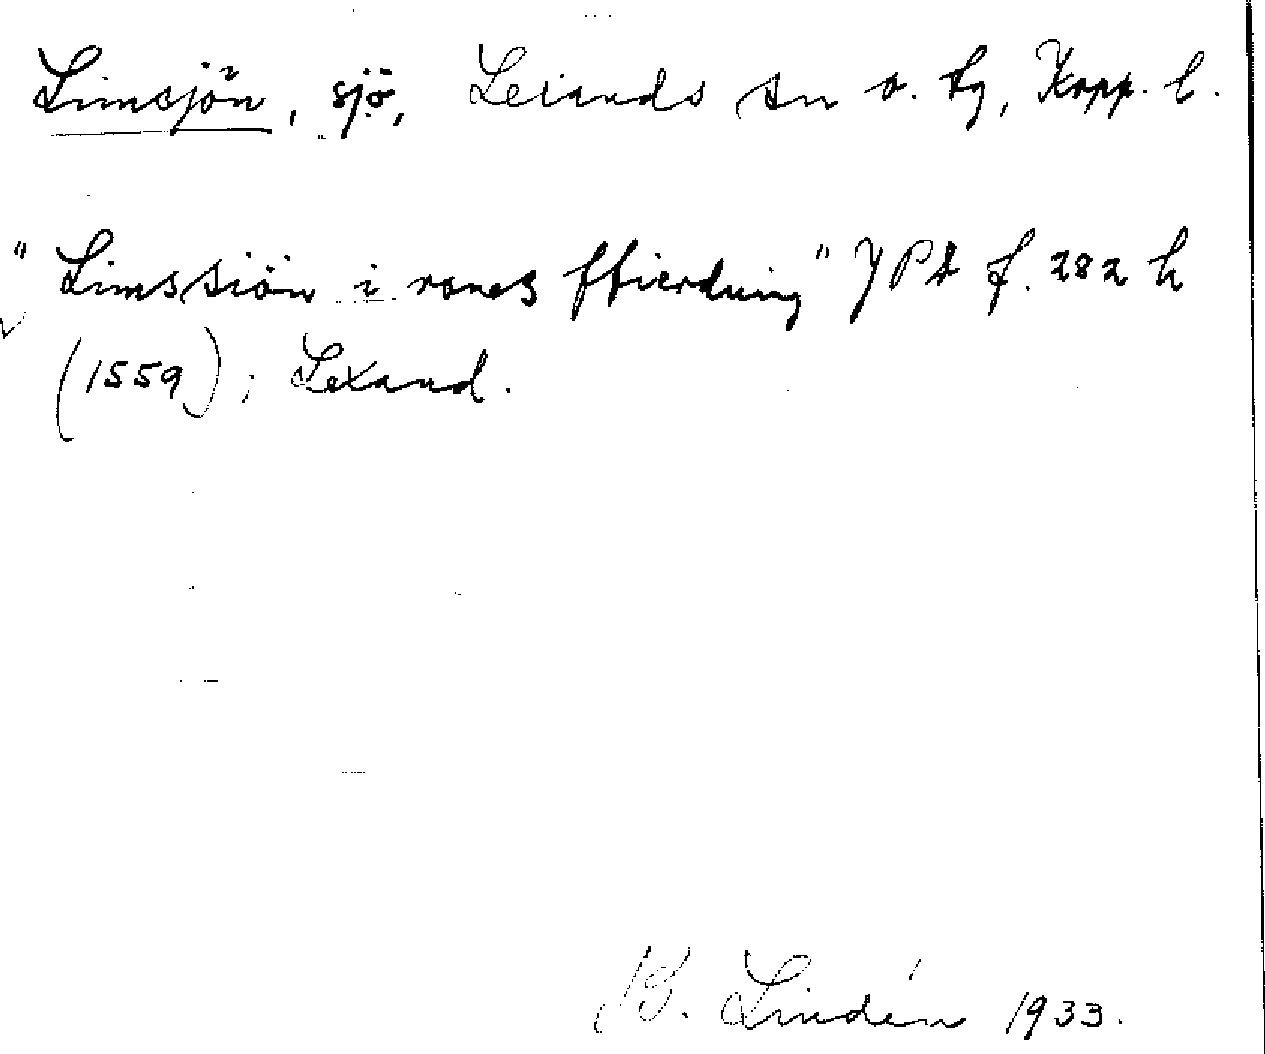 Limsjön, sjö, Lexands sn o. tg, Kopp. l.
"Limssiön i rones ffierdning" JPB f. 282 h
(1559); Lexand.
B. Lindén 1933.